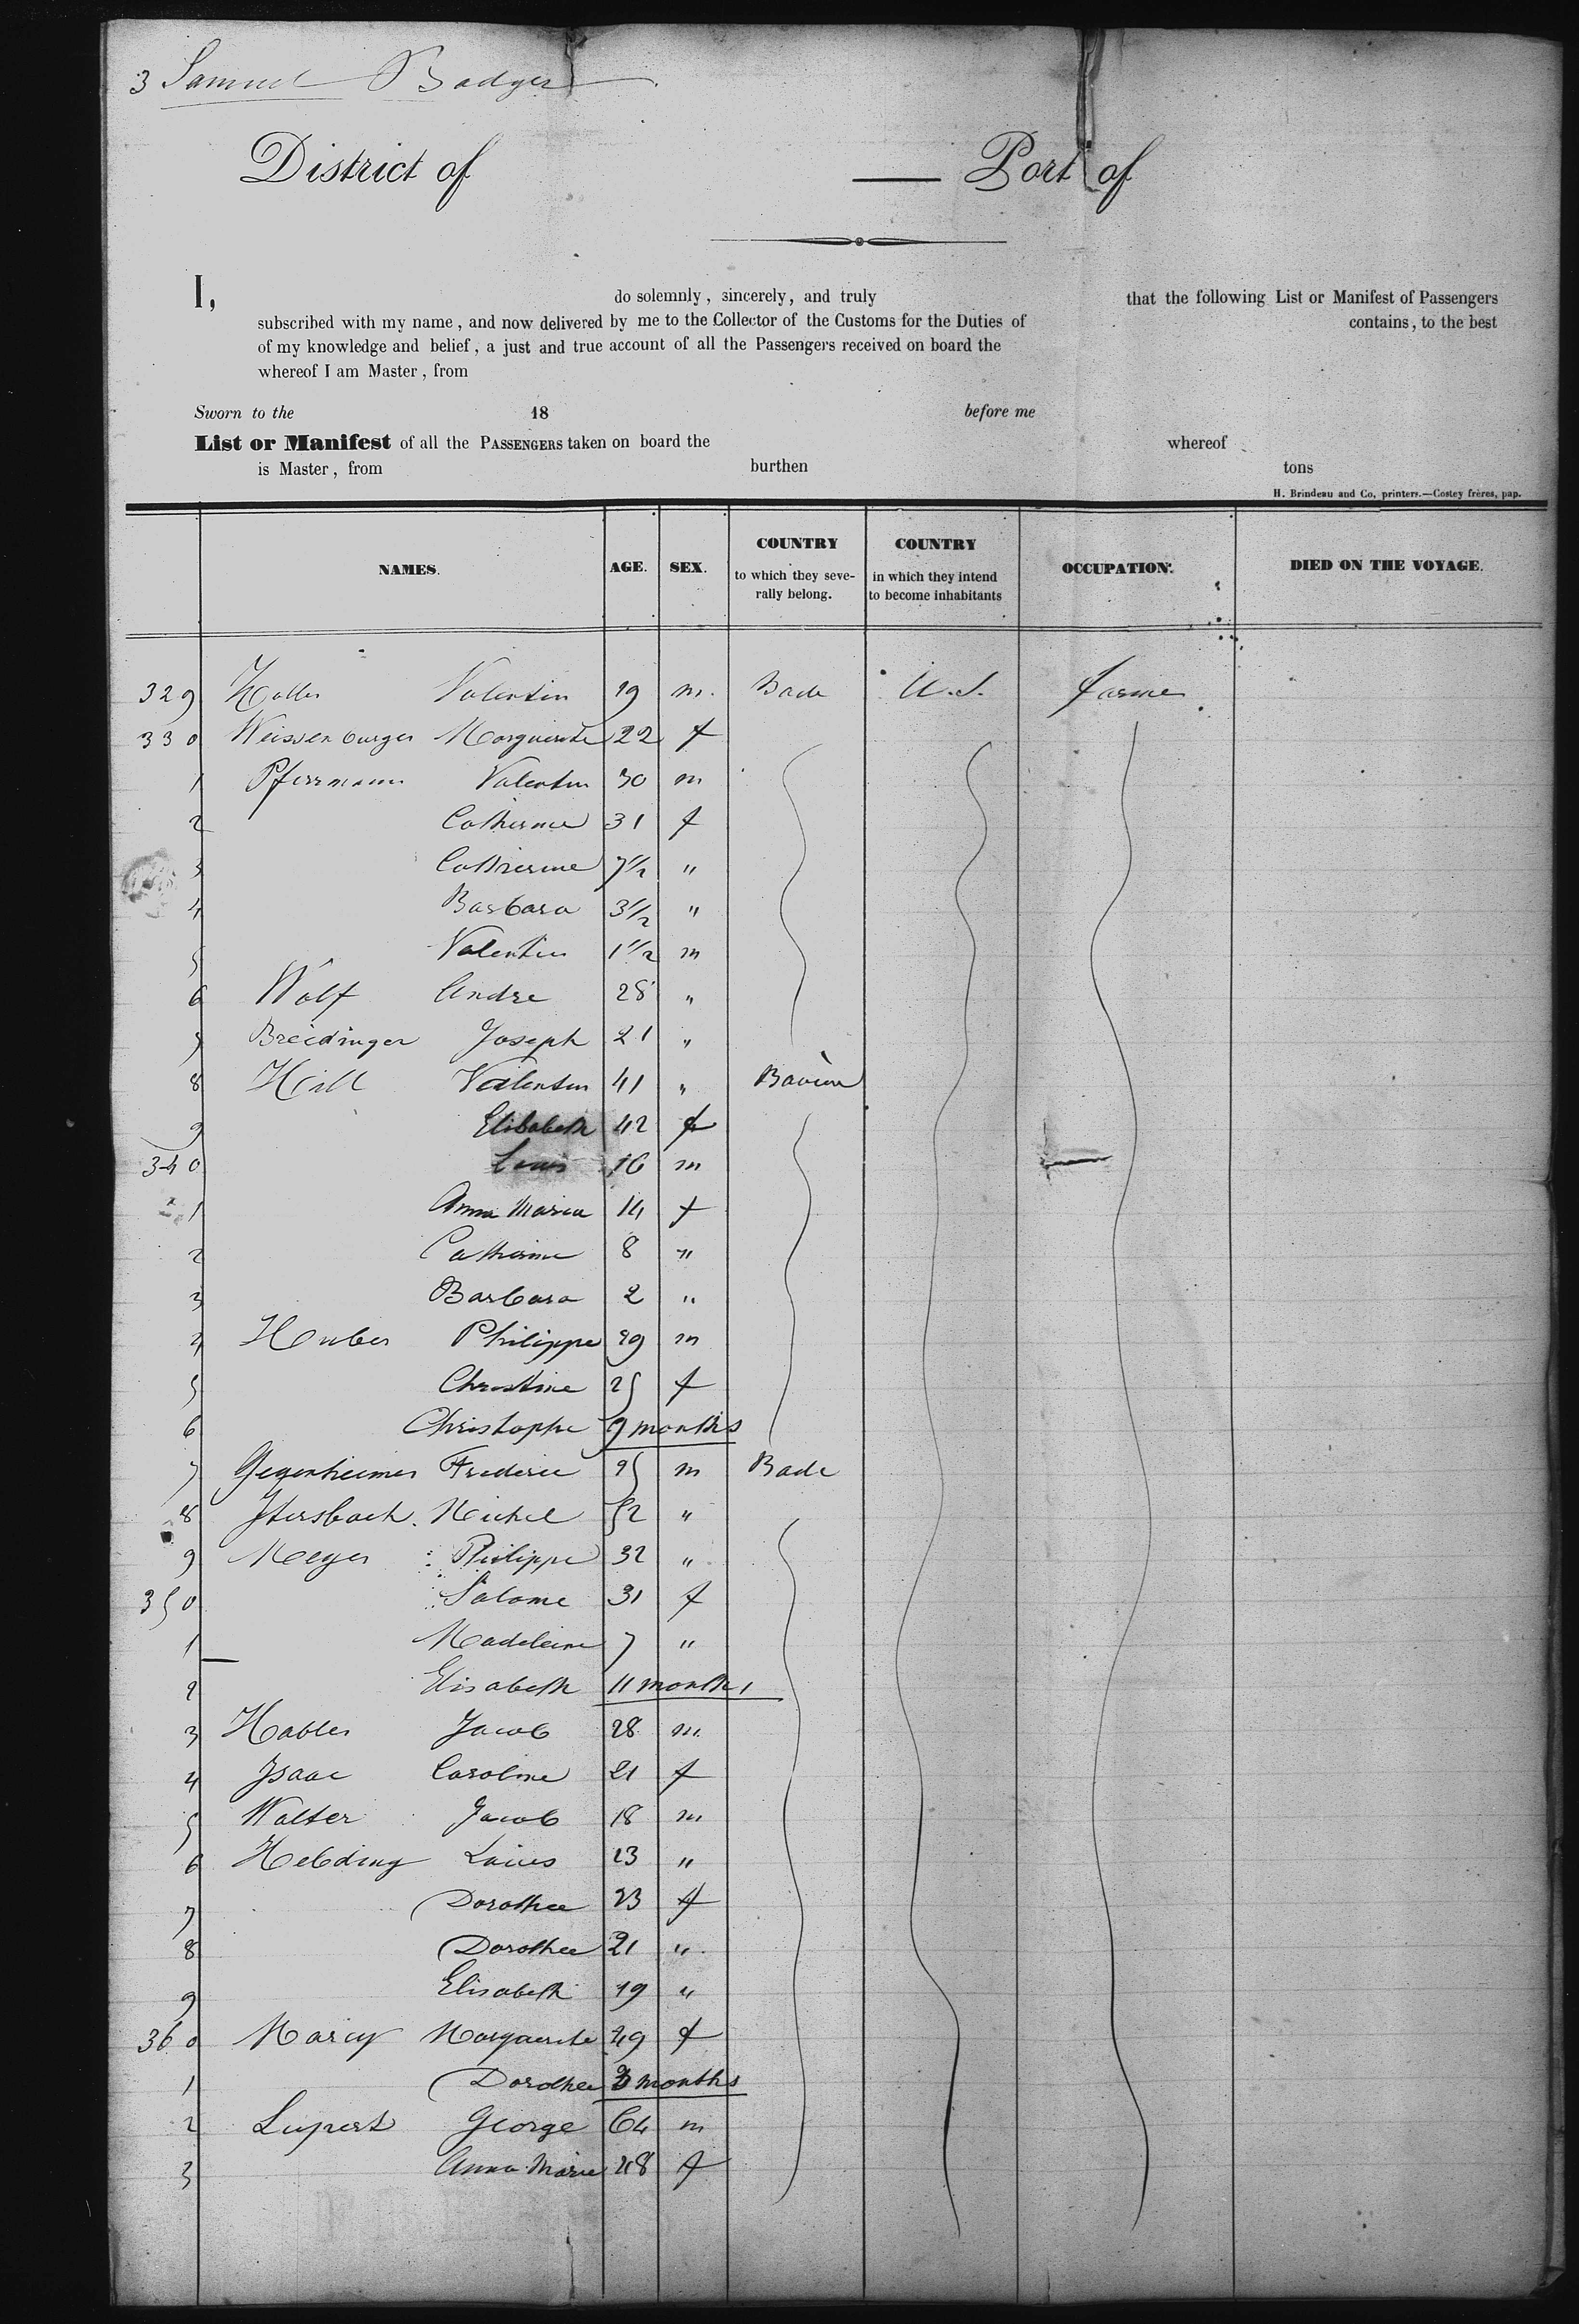 3 Samuel Badger
District of — Port of
I, do solemnly, sincerely, and truly that the following List or Manifest of Passengers
subscribed with my name, and now delivered by me to the Collector of the Customs for the Duties of contains, to the best
of my knowledge and belief, a just and true account of all the Passengers received on board the
whereof I am Master, from
Sworn to the 18 before me
List or Manifest of all the PASSENGERS taken on board the whereof
is Master, from burthen tons
H. Brindeau and Co, printers.—Costey frères, pap.
NAMES. AGE. SEX. COUNTRY to which they seve-rally belong. COUNTRY in which they intend to become inhabitants OCCUPATION. DIED ON THE VOYAGE.
329 Valentin 19 m. Bade U.S. farmer
330 Weissenburger Marguerite 22 f
1 Pferrmann Valentin 30 m
2 Catherine 31 f
3 Catherine 7 1/2 "
4 Barbara 3 1/2 "
5 Valentin 1 1/2 m
6 Wolf Andre 28 "
7 Breidinger Joseph 21 "
8 Hill Valentin 41 " Bavière
9 Elisabeth 42 f
340 Louis 16 m
1 Anna Maria 14 f
2 Catherine 8 "
3 Barbara 2 "
4 Huber Philippe 29 m
5 Christine 25 f
6 Christophe 9 months
7 Gegenheimer Frederic 25 m Bade
8 Itersbach. Michel 52 "
9 Meyer Philippe 32 "
350 Salome 31 f
1 Madeleine 7 "
2 Elisabeth 11 months
3 Habler Jacob 28 m.
4 Isaac Caroline 21 f
5 Walter Jacob 18 m
6 Helbding Louis 23 "
7 Dorothee 23 f
8 Dorothee 21 "
9 Elisabeth 19 "
360 Marcy Marguerite 49 f
1 Dorothee 3 months
2 Lupert George 64 m
3 Anna Marie 48 f